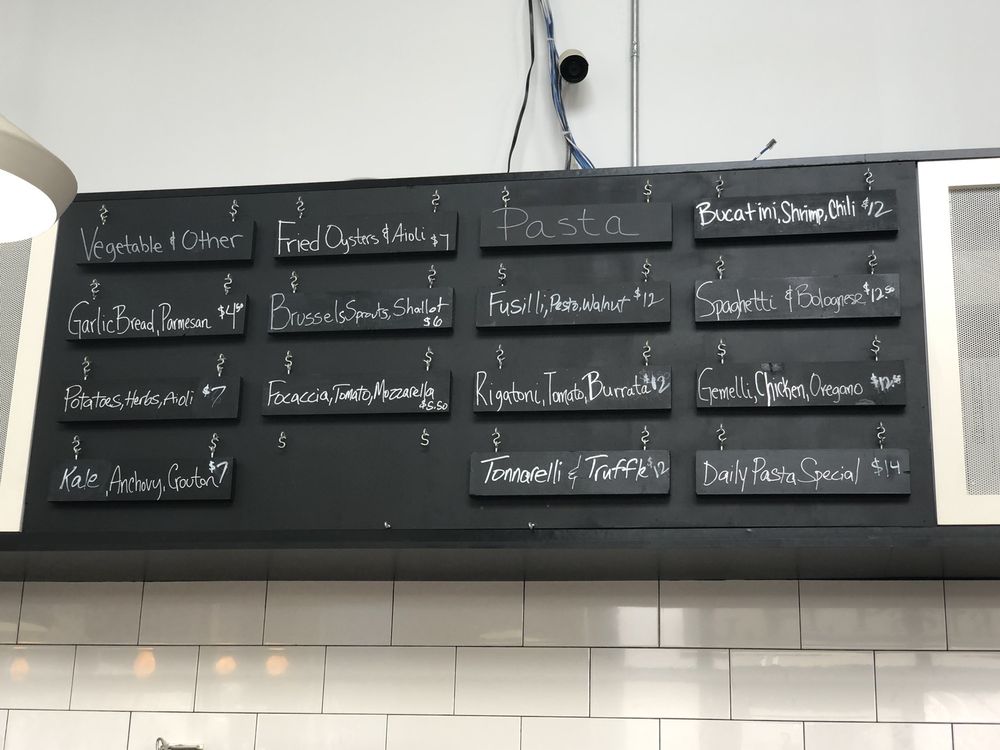 Vegetable & Other
Garlic Bread, Parmesan $4.50
Potatoes, Herbs, Aioli $7
Kale, Anchovy, Crouton $7
Fried Oysters & Aioli $7
Brussels Sprouts, Shallot
$6
Focaccia, Tomato, Mozzarella
$5.50
Pasta
Fusilli, Pesto, Walnut $12
Rigatoni, Tomato, Burrata $12
Tonnarelli & Truffle $12
Bucatini, Shrimp, Chili $12
Spaghetti & Bolognese $12.50
Gemelli, Chicken, Oregano
Daily Pasta Special $14